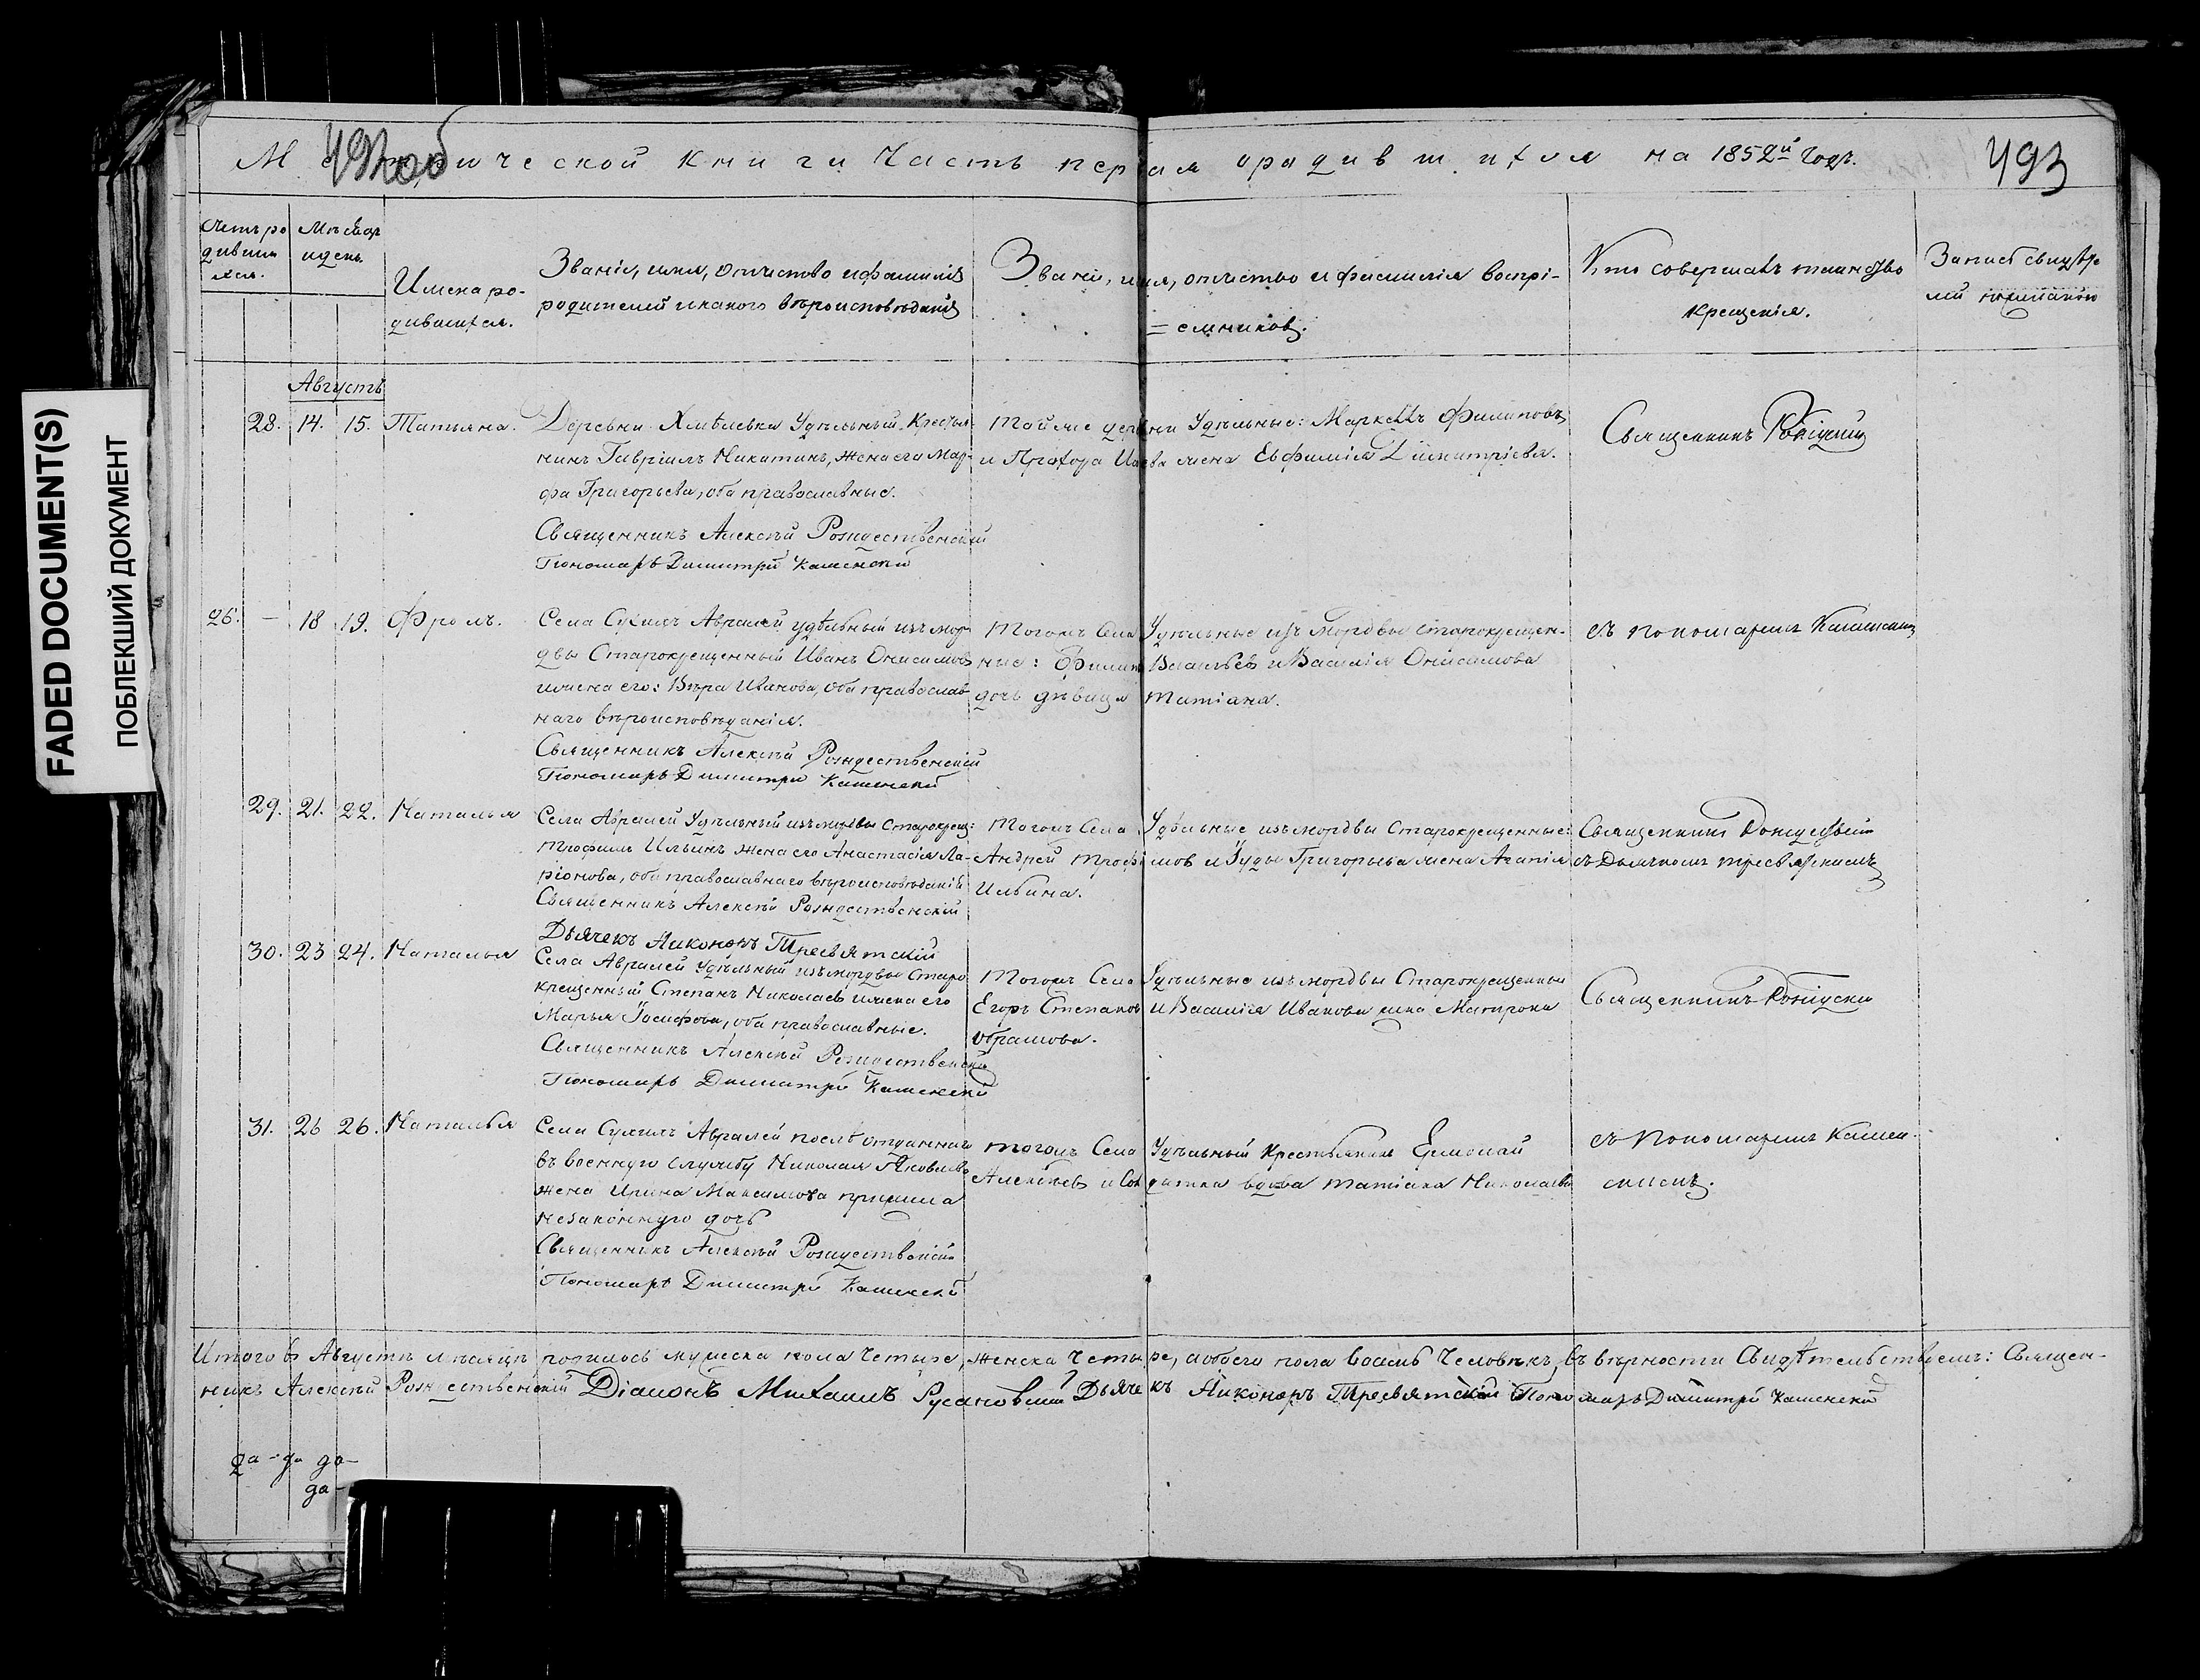 FADED DOCUMENT(S)
ПОБЛЕКШИЙ ДОКУМЕНТ
Метрической книги часть первая о родившихся на 1852й годъ.
493
Счетъ ро
дивши
хся.
Мѣсяцъ
и день
Имена ро-
дившихся.
Званіе, имя, отчество и фамилія
родителей и какого вѣроисповѣданія
Званіе, имя, отчество и фамилія воспрі-
=емниковъ.
Кто совершалъ таинство
крещенія.
Августъ
28. 14. 15. Татьяна.
Деревни Хлѣбаевки Удѣльный Крестья
нинъ Гавріилъ Никитинъ, жена его Мар-
фа Григорьева, оба православные.
Священникъ Алексѣй Рождественскій
Пономарь Димитрій Каменскій
Тойже деревни Удѣльные: Маркеллъ Филиповъ
и Прохора жена Евфимія Димитріева.
Священникъ
26. – 18 19. Фролъ.
Села Авралей удѣльный изъ мор
двы Старокрещенный Иванъ Онисимовъ
и жена его: Вѣра Иванова, оба православ
наго вѣроисповѣданія.
Священникъ Алексѣй Рождественскій
Пономарь Димитрій Каменскій
Тогожъ Села Удѣльные изъ Мордвы старокрещен-
ные: Филипъ Васильевъ и Василія Онисимова
дочь дѣвица Татіана.
съ пономаремъ Каменскимъ
29. 21. 22. Наталья
Села Авралей Удѣльный изъ мордвы Старокрещ:
Трофимъ Ильинъ жена его Анастасія Ла-
ріонова, оба православнаго вѣроисповѣданія
Священникъ Алексѣй Рождественскій
Дьячекъ Никоноръ Тресвятскій
Тогожъ Села Удѣльные изъ мордвы Старокрещенные:
Андрей Трофимов и Іуды Григорьева жена Агапія
Ильина.
Священникъ
съ Дьячкомъ Тресвятскимъ
30. 23 24. Наталья
Села Авралей Удѣльный изъ мордвы Старо
крещенный Степанъ Николаевъ и жена его
Марья Іосифова, оба православные.
Священникъ Алексѣй Рождественскій
Пономарь Димитрій Каменскій
Тогожъ Села Удѣльные изъ мордвы Старокрещенные
Егоръ Степановъ и Василія Иванова жена Матрона
Абрамова.
Священникъ
31. 26 26. Наталья
Села Авралей послѣ отданнаго
въ военную службу Николая Яковлева
жена Ирина Максимова прижила
незаконную дочь
Священникъ Алексѣй Рождественскій
Пономарь Димитрій Каменскій
Тогожъ Села Удѣльный Крестьянинъ Ермолай
Алексѣевъ и Солдатка вдова Татіана Николаева
съ Пономаремъ Камен-
скимъ.
Итого въ Августѣ мѣсяцѣ родилось мужеска пола Четыре, женска Четыре, а обоего пола восемь Человѣкъ, въ вѣрности Свидѣтельствуемъ: Священ-
никъ Алексѣй Рождественскій Діаконъ Михаилъ Русановскій Дьячекъ Никоноръ Тресвятскій Пономарь Димитрій Каменскій